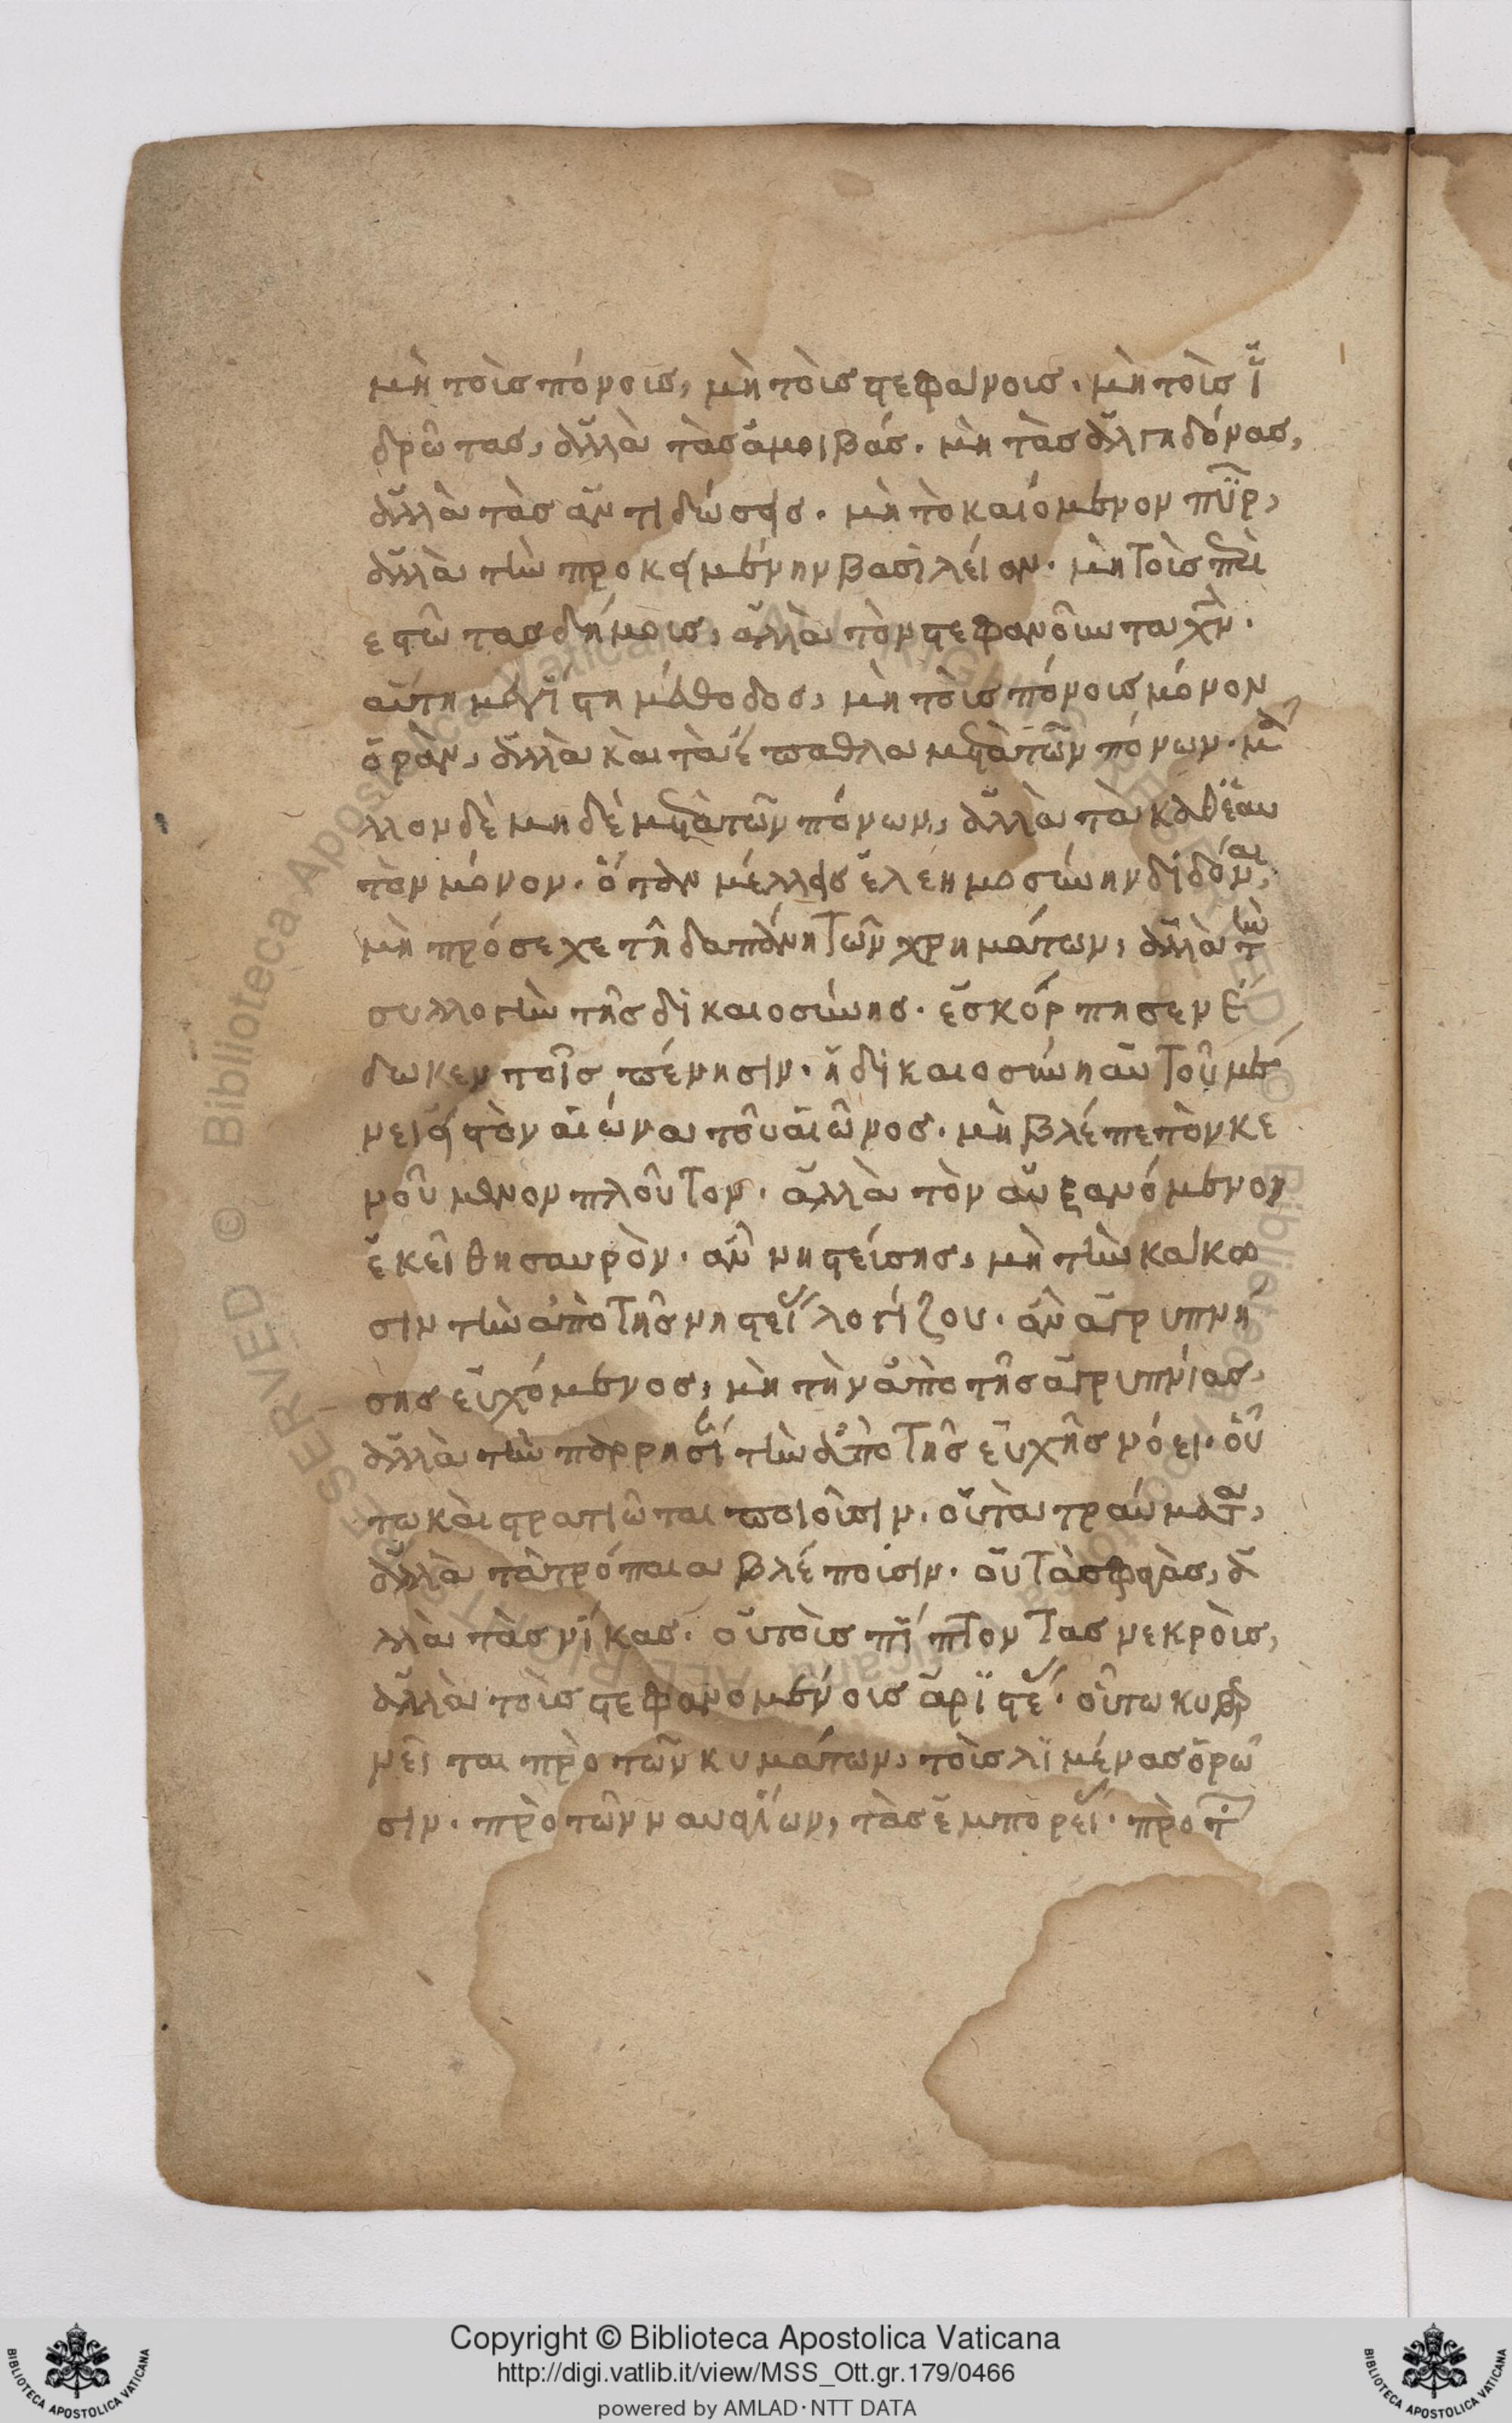 μὴ τοὺς πόνους, μὴ τοὺς στεφάνους. μὴ τοὺς ἱ
δρῶτας, ἀλλὰ τὰς ἀμοιβάς. μὴ τὰς ἀλγηδόνας,
ἀλλὰ τὰς ἀντιδώσεις. μὴ τὸ καιόμενον πῦρ,
ἀλλὰ τὴν προκειμένην βασιλείαν. μὴ τοὺς
ἑστῶτας δημίους, ἀλλὰ τὸν στεφανοῦντα χν.
αὕτη μεγίστη μέθοδος, μὴ τοὺς πόνους μόνον
ὁρᾶν, ἀλλὰ καὶ τὰ ἔπαθλα μετὰ τῶν πόνων. μᾶ
λλον δὲ μηδὲ μετὰ τῶν πόνων, ἀλλὰ τὰ καθ' ἑαυ
τὸν μόνον. ὅταν μέλλῃς ἐλεημοσύνην διδόναι,
μὴ πρόσεχε τῇ δαπάνῃ τῶν χρημάτων, ἀλλὰ τὴν
συλλογὴν τῆς δικαιοσύνης. ἐσκόρπησεν ἔ
δωκεν τοῖς πένησιν. ἡ δικαιοσύνη αὐτοῦ μέ
νει εἰς τὸν αἰῶνα τοῦ αἰῶνος. μὴ βλέπε τὸν κε
νούμενον πλοῦτον. ἀλλὰ τὸν αὐξανόμενον
ἐκεῖ θησαυρόν. ἂν νηστεύσης, μὴ τὴν κάκω
σιν τὴν ἀπὸ τῆς νηστείας λογίζου. ἂν ἀγρυπνή
σης εὐχόμενος, μὴ τὴν ἀπὸ τῆς ἀγρυπνίας,
ἀλλὰ τὴν παρρησίαν τὴν ἀπὸ τῆς εὐχῆς νόει. οὕ
τω καὶ στρατιῶται ποιοῦσιν. οὐ τὰ τραύματα,
ἀλλὰ τὰ τρόπαια βλέπουσιν. οὐ τὰς σφαγὰς, ἀ
λλὰ τὰς νίκας. οὐ τοὺς πίπτοντας νεκροὺς,
ἀλλὰ τοὺς στεφανομένους ἀριστεῖς. οὕτω κυβερ
νῆται πρὸ τῶν κυμάτων, τοὺς λιμένας ὁρῶ
σιν. πρὸ τῶν ναυαγίων, τὰς ἐμπορείας. πρὸ τῶν
Copyright © Biblioteca Apostolica Vaticana
http://digi.vatlib.it/view/MSS_Ott.gr.179/0466
powered by AMLAD · NTT DATA